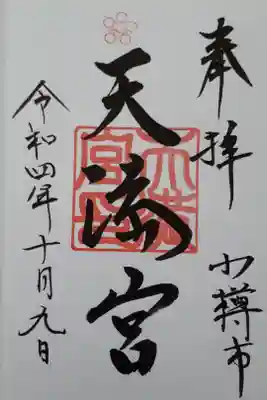 奉拝
小樽市
天満宮
令和四年十月九日